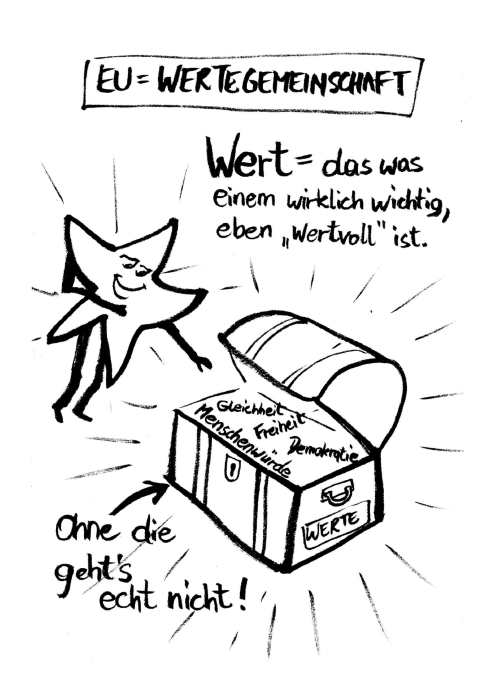 EU = WERTEGEMEINSCHAFT
Wert = das was
einem wirklich wichtig,
eben „Wertvoll" ist.
Gleichheit
Freiheit
Menschenwürde
Demokratie
WERTE
Ohne die
geht's
echt nicht!